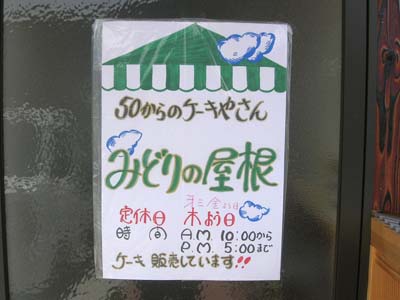 50からのケーキやさん
みどりの屋根
第三金よう日
定休日 木よう日
時間 A.M. 10:00から
P.M. 5:00まで
ケーキ販売しています!!